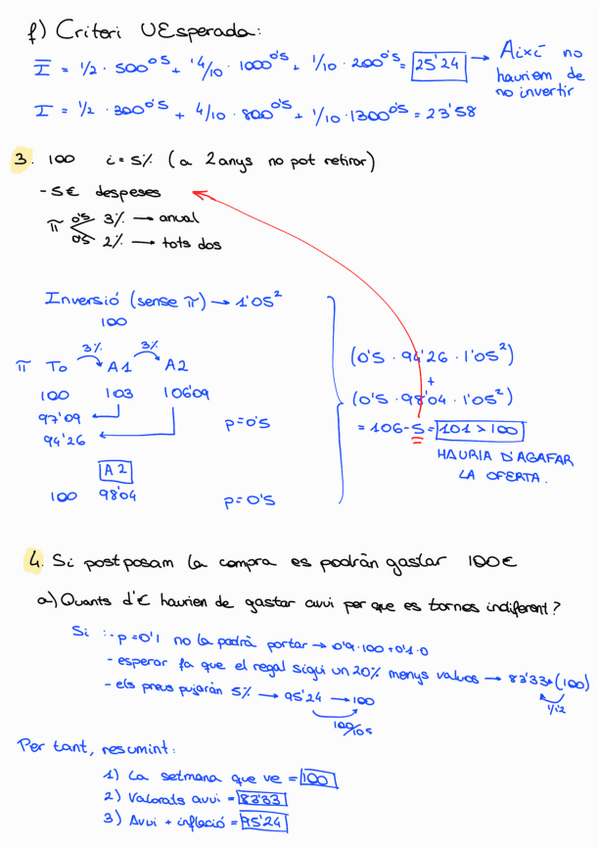 f) Criteri UEsperada:
I = 1/2 · 500^0'5 + 4/10 · 1000^0'5 + 1/10 · 200^0'5 = 25'24 → Així no hauriem de no invertir
I = 1/2 · 300^0'5 + 4/10 · 800^0'5 + 1/10 · 1300^0'5 = 23'58
3. 100 i = 5% (a 2 anys no pot retirar)
- 5€ despeses
π 0'5 3% → anual
0'5 2% → tots dos
Inversió (sense π) → 1'05²
100
3% 3%
π To A1 A2
100 103 106'09
97'09
94'26
p = 0'5
A2
100 98'04 p = 0'5
(0'5 · 94'26 · 1'05²)
+
(0'5 · 98'04 · 1'05²)
= 106 - 5 = 101 > 100
HAURIA D'AGAFAR
LA OFERTA.
4. Si postposam la compra es podràn gastar 100€
a) Quants d'€ haurien de gastar avui per que es tornes indiferent?
Si : - p = 0'1 no la podrà portar → 0'9 · 100 + 0'1 · 0
- esperar fa que el regal sigui un 20% menys valuos → 83'33 (100)
1/1'2
- els preus pujaràn 5% → 95'24 → 100
100/1'05
Per tant, resumint:
1) La setmana que ve = 100
2) Valorats avui = 83'33
3) Avui + inflació = 95'24